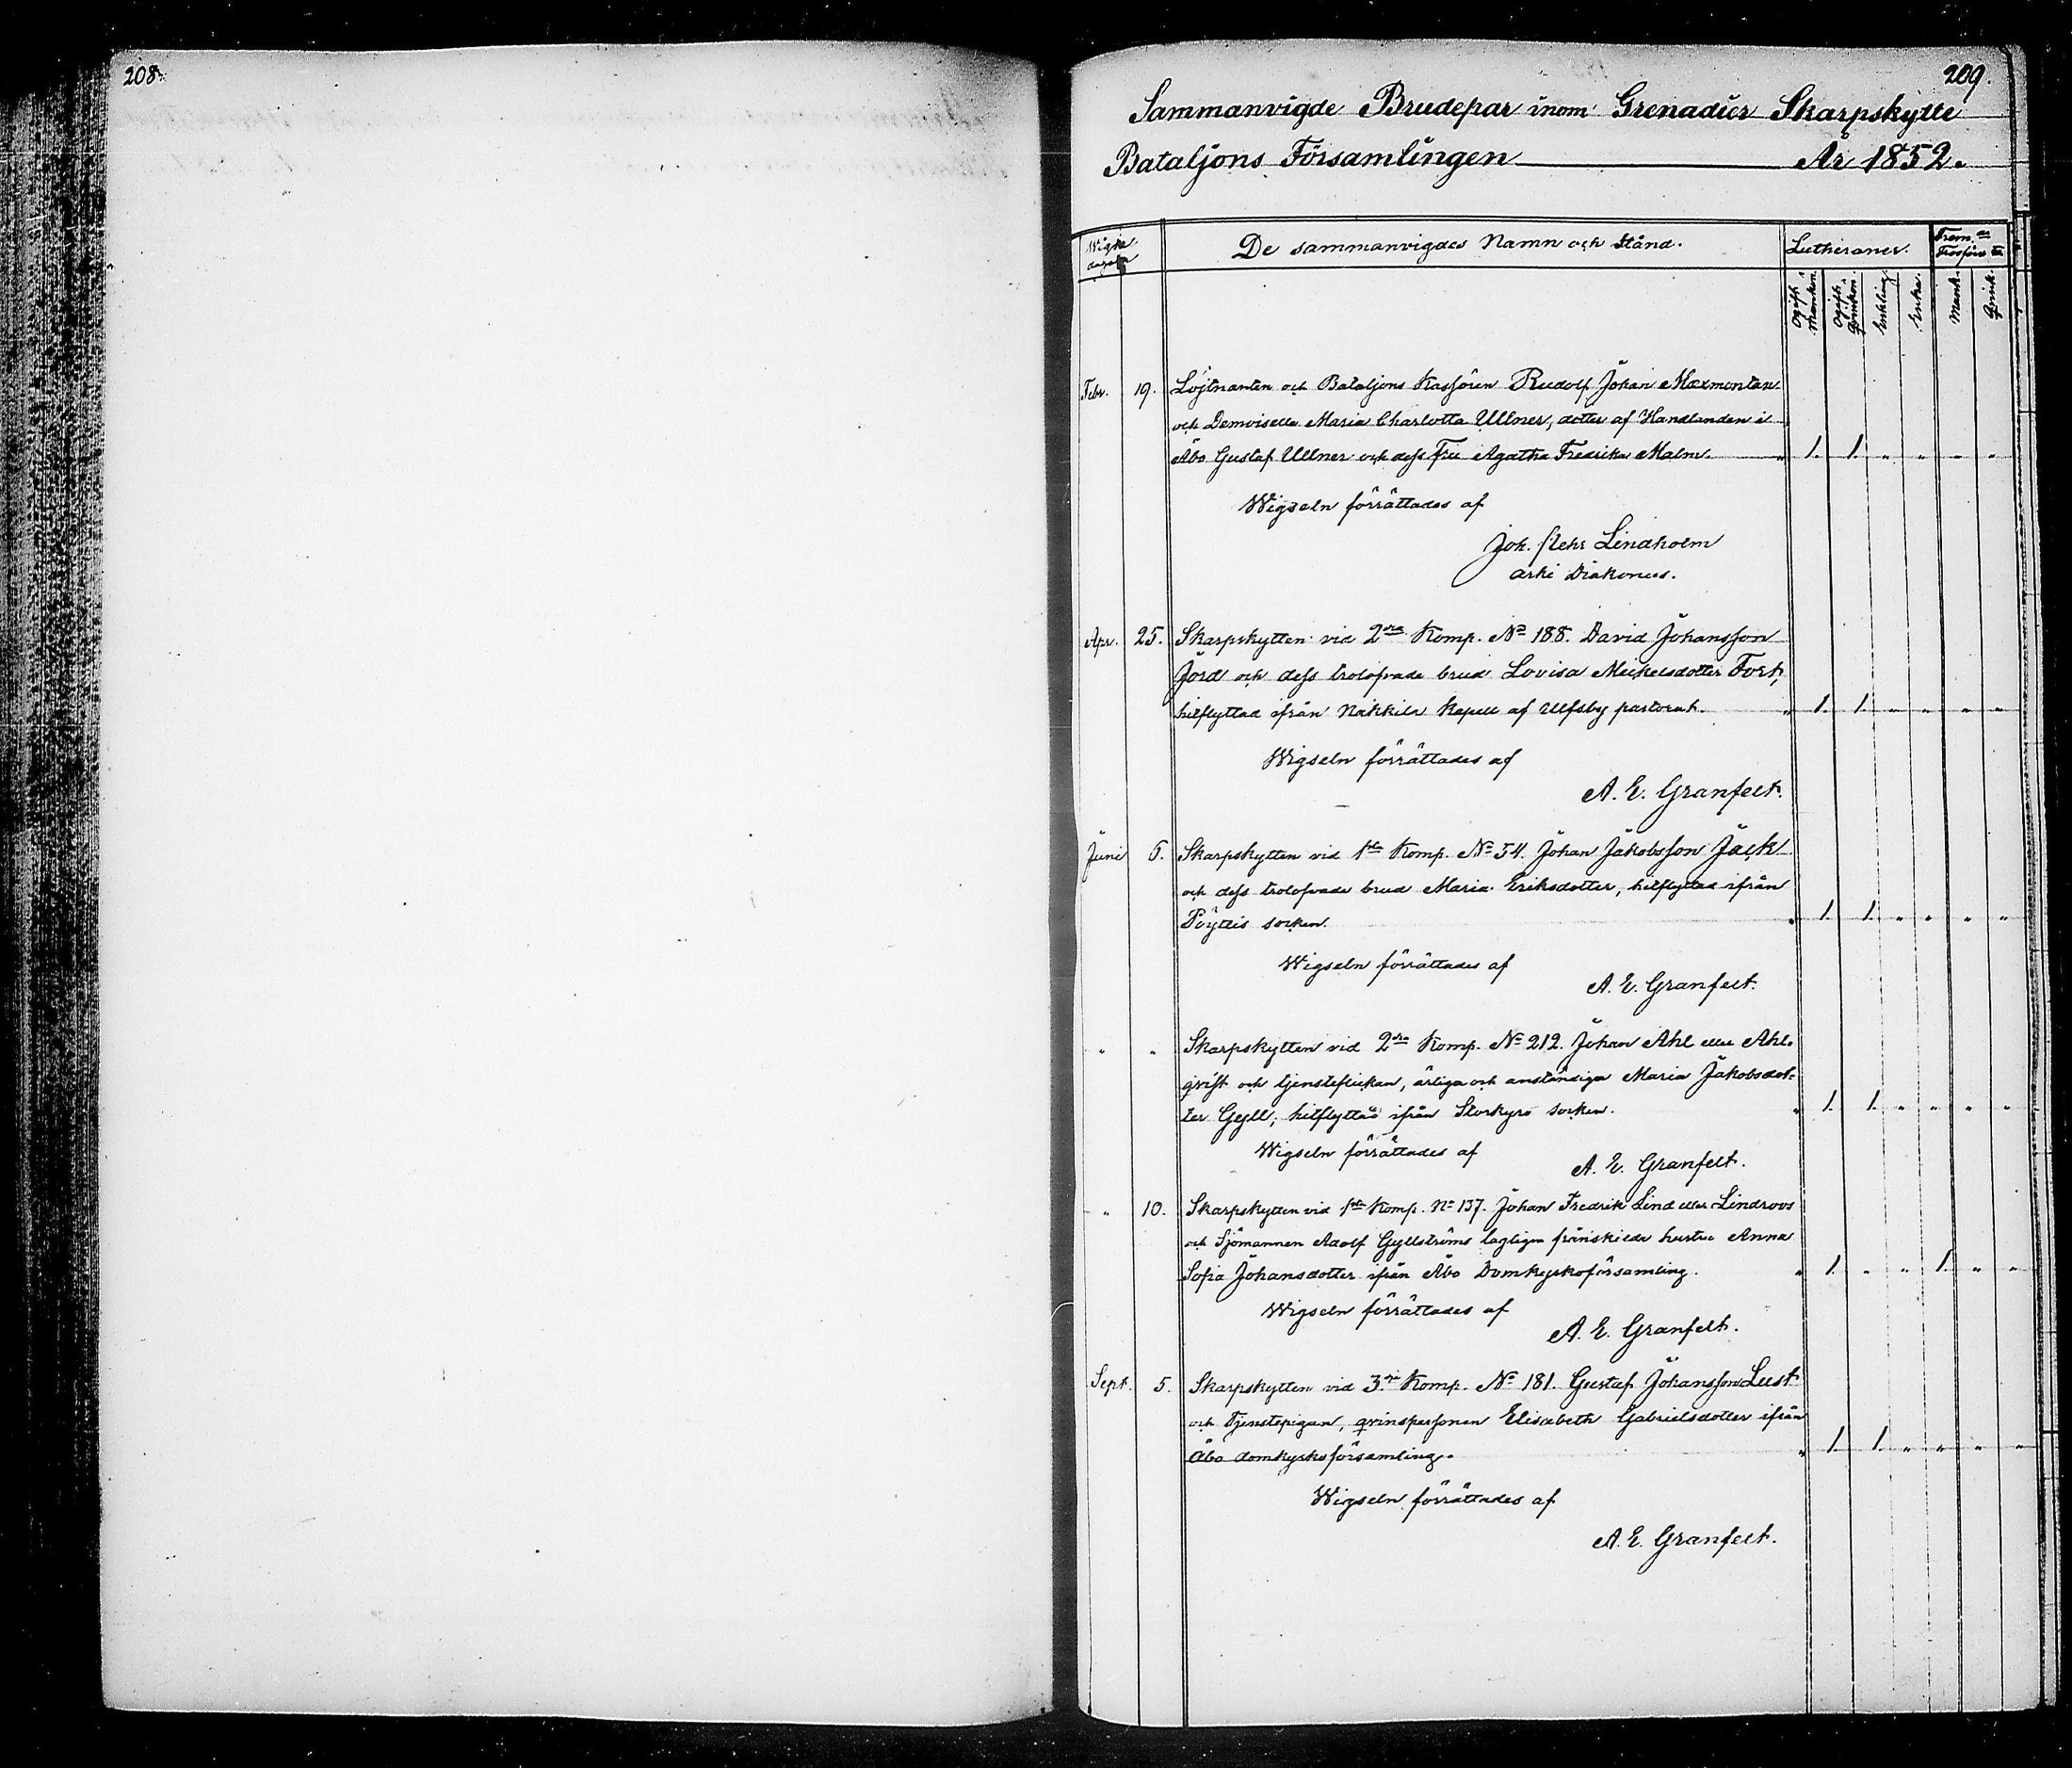 208.
209.
Sammanvigde Brudepar inom Grenadier Skarpskytte
Bataljons Församlingen År 1852.
De sammanvigdes Namn och Stånd.
Lutheraner.
Ogift Mankön.
Ogift Qvinkön.
Enkling.
Enka.
Mank.
Qvink.
Febr. 19. Löjtnanten och Bataljons Kassören Rudolf Johan Maxmontan
och Demoiselle Maria Charlotta Ullner, dotter af Handlanden i
Åbo Gustaf Ullner och dess Fru Agatha Fredrika Malm. " 1. 1. " " " "
Wigseln förrättades af
Joh. Lindholm
Arki Diakonus.
Apr. 25. Skarpskytten vid 2dra Komp. No 188. David Johansson
Jord och dess trolofvade brud Lovisa Mickelsdotter Fort,
hitflyttad ifrån Nakkila Kapell af Ulfsby pastorat. " 1. 1. " " " "
Wigseln förrättades af
A. E. Granfelt.
Juni 6. Skarpskytten vid 1sta Komp. No 54. Johan Jakobsson Jack
och dess trolofvade brud Maria Eriksdotter, hitflyttad ifrån
Pöytis socken. " 1. 1. " " " "
Wigseln förrättades af
A. E. Granfelt.
" " Skarpskytten vid 2dra Komp. No 212. Johan Ahl eller Ahl-
qvist och tjensteflickan, ärliga och anständiga Maria Jakobsdot-
ter Gyll, hitflyttad ifrån Storkyro socken. " 1. 1. " " " "
Wigseln förrättades af
A. E. Granfelt.
" 10. Skarpskytten vid 1sta Komp. No 137. Johan Fredrik Lind eller Lindroos
och Sjömannen Adolf Gyllströms lagligen frånskilda hustru Anna
Sofia Johansdotter ifrån Åbo Domkyrkoförsamling. " 1. " " 1. " "
Wigseln förrättades af
A. E. Granfelt.
Sept. 5. Skarpskytten vid 3dje Komp. No 181. Gustaf Johansson Lust
och Tjenstepigan, qvinspersonen Elisabeth Gabrielsdotter ifrån
Åbo domkyrkoförsamling. " 1. 1. " " " "
Wigseln förrättades af
A. E. Granfelt.